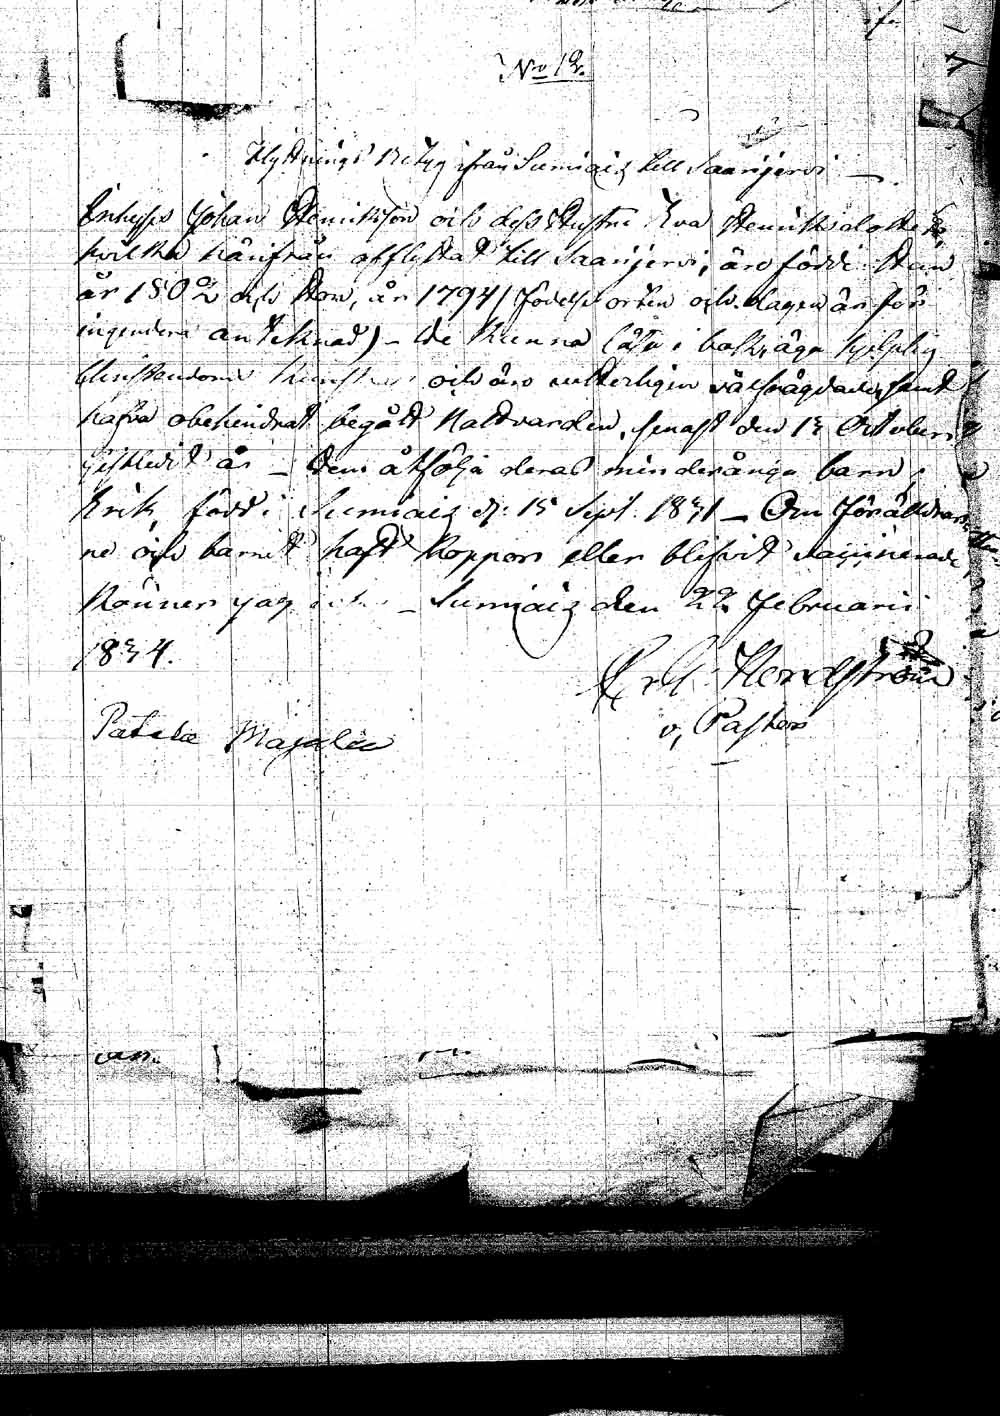 No 12.
Flyttnings Betyg ifrån Sumiais till Saarijervi
Inhyses Johan Henriksson och dess Hustru Eva Henriksdotter,
hvilka härifrån afflyttat till Saarijervi, äro födde: Han
år 1802 och Hon, år 1794 (födelse orten och dagen är för
ingendera antecknad) – De kunna läsa i bok, äga hjelplig
Christendoms kunskap och äro vitterligen välfrägdade, samt
hafva obehindrat begått Nattvarden, senast den 13 October
sistledit år – Dem åtfölja deras minderåriga barn,
Erik, född i Sumiais d. 15 Sept. 1831 – Om Föräldrar-
ne och barnet haft koppor eller blifvit vaccinerade
känner jag icke – Sumiais den 22 Februarii
1834.
Hendström
v. Pastor
Patala Majalie